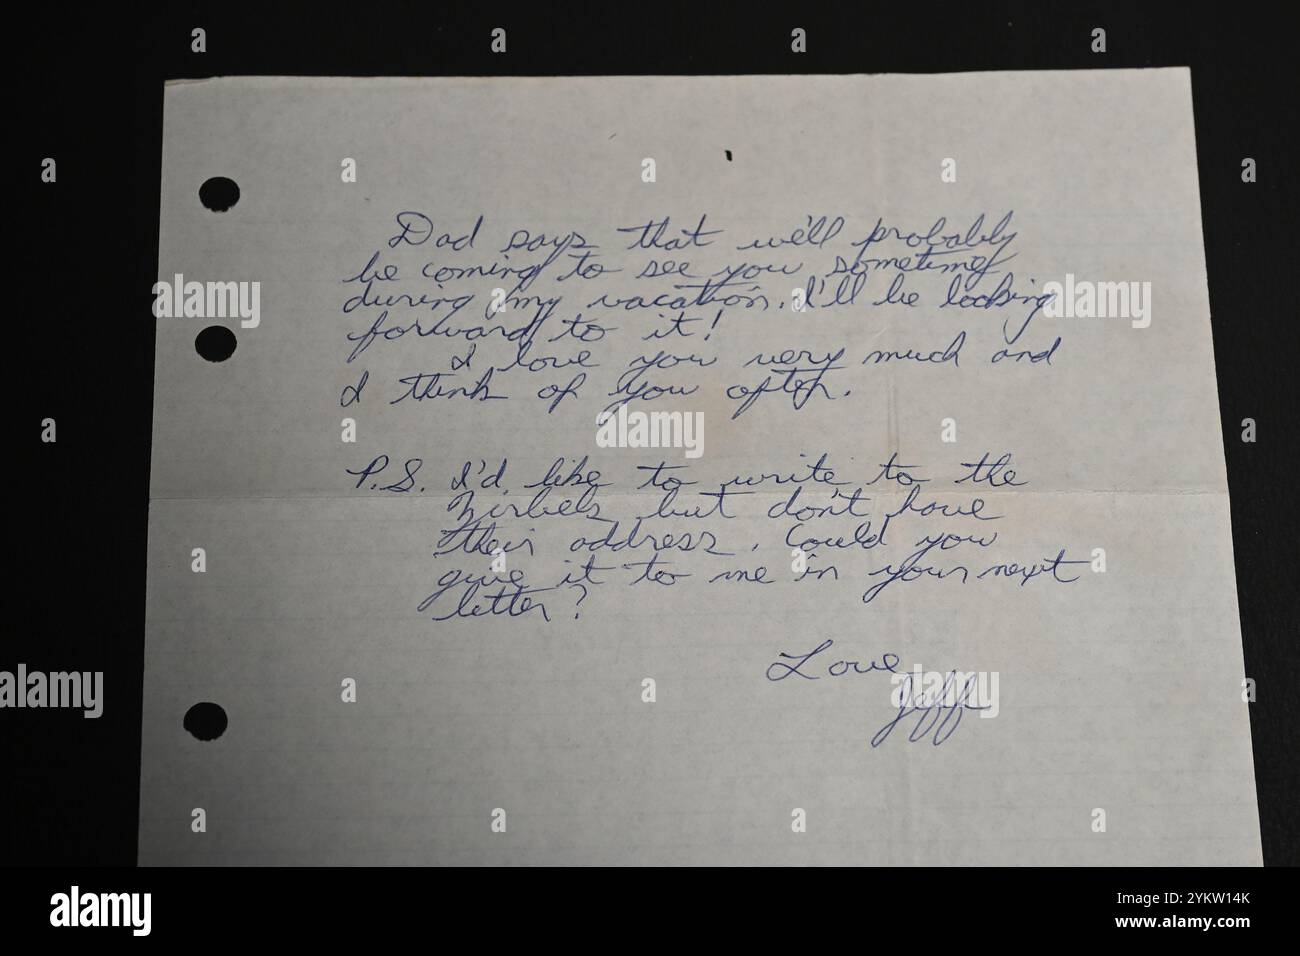 Dad says that we'll probably
be coming to see you sometime
during my vacation. I'll be looking
forward to it!
I love you very much and
I think of you often.
P.S. I'd like to write to the
Zirbels, but don't have
their address. Could you
give it to me in your next
letter?
Love,
Jeff
alamy
Image ID: 2YKW14K
www.alamy.com